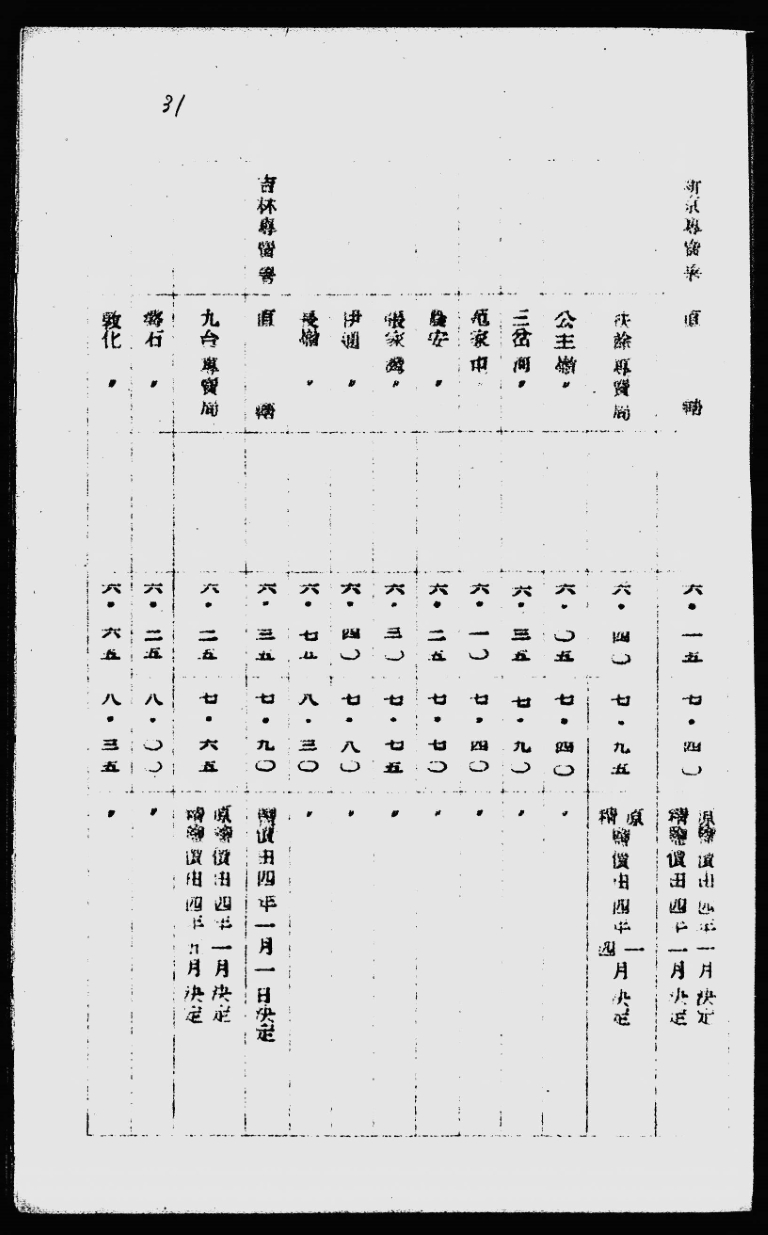 31
新京專賣署 直轄 六・一五 七・四〇 原鹽價由四年一月決定
精鹽價由四年一月決定
扶餘專賣局 六・四〇 七・九五 原鹽價由四年一月決定
精 四
公主嶺〃 六・〇五 七・四〇 〃
三岔河〃 六・三五 七・九〇 〃
范家屯 六・一〇 七・四〇 〃
農安〃 六・二五 七・七〇 〃
張家灣〃 六・三〇 七・七五 〃
伊通〃 六・四〇 七・八〇 〃
長嶺〃 六・七五 八・三〇 〃
吉林專賣署 直轄 六・三五 七・九〇 鹽價由四年一月一日決定
九台專賣局 六・二五 七・六五 原鹽價由四年一月決定
精鹽價由四年五月決定
磐石〃 六・二五 八・〇〇 〃
敦化〃 六・六五 八・三五 〃